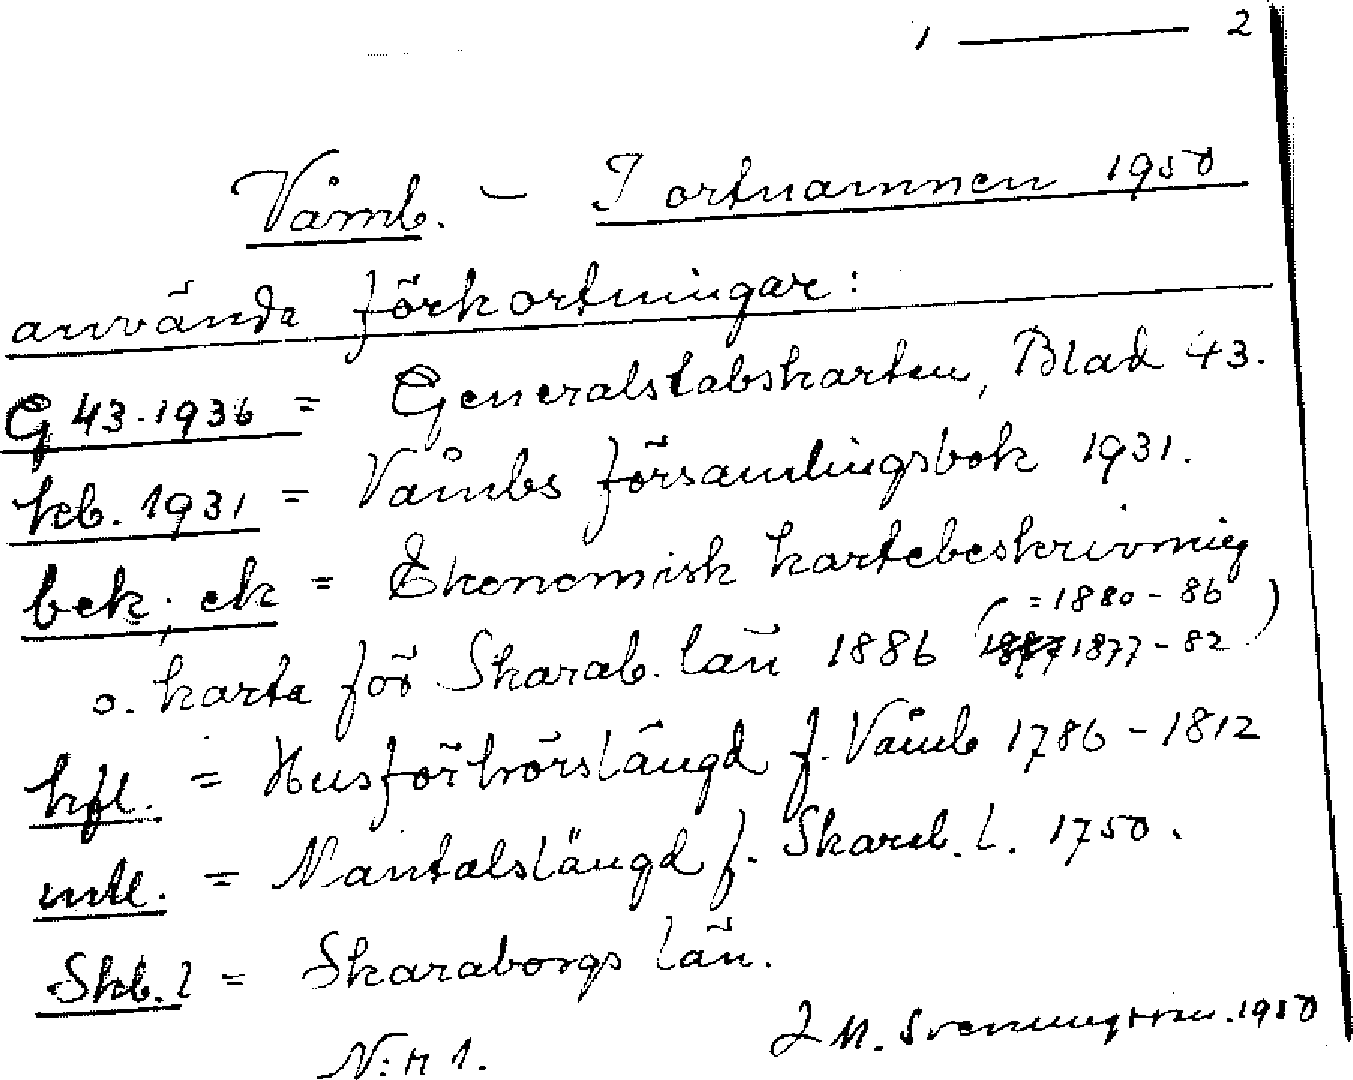 1 — 2
Våmb. — I ortnamnen 1950
använda förkortningar:
G 43.1936 = Generalstabskartan, Blad 43.
kb. 1931 = Våmbs församlingsbok 1931.
bek; ek = Ekonomisk kartebeskrivning
(=1880-86
o. karta för Skarab. län 1886 1877-82.)
hfl. = Husförhörslängd f. Våmb 1786-1812
mtl. = Mantalslängd f. Skarab. l. 1750.
Skb. l = Skaraborgs län.
N:r 1. J M. Svenungsson. 1950